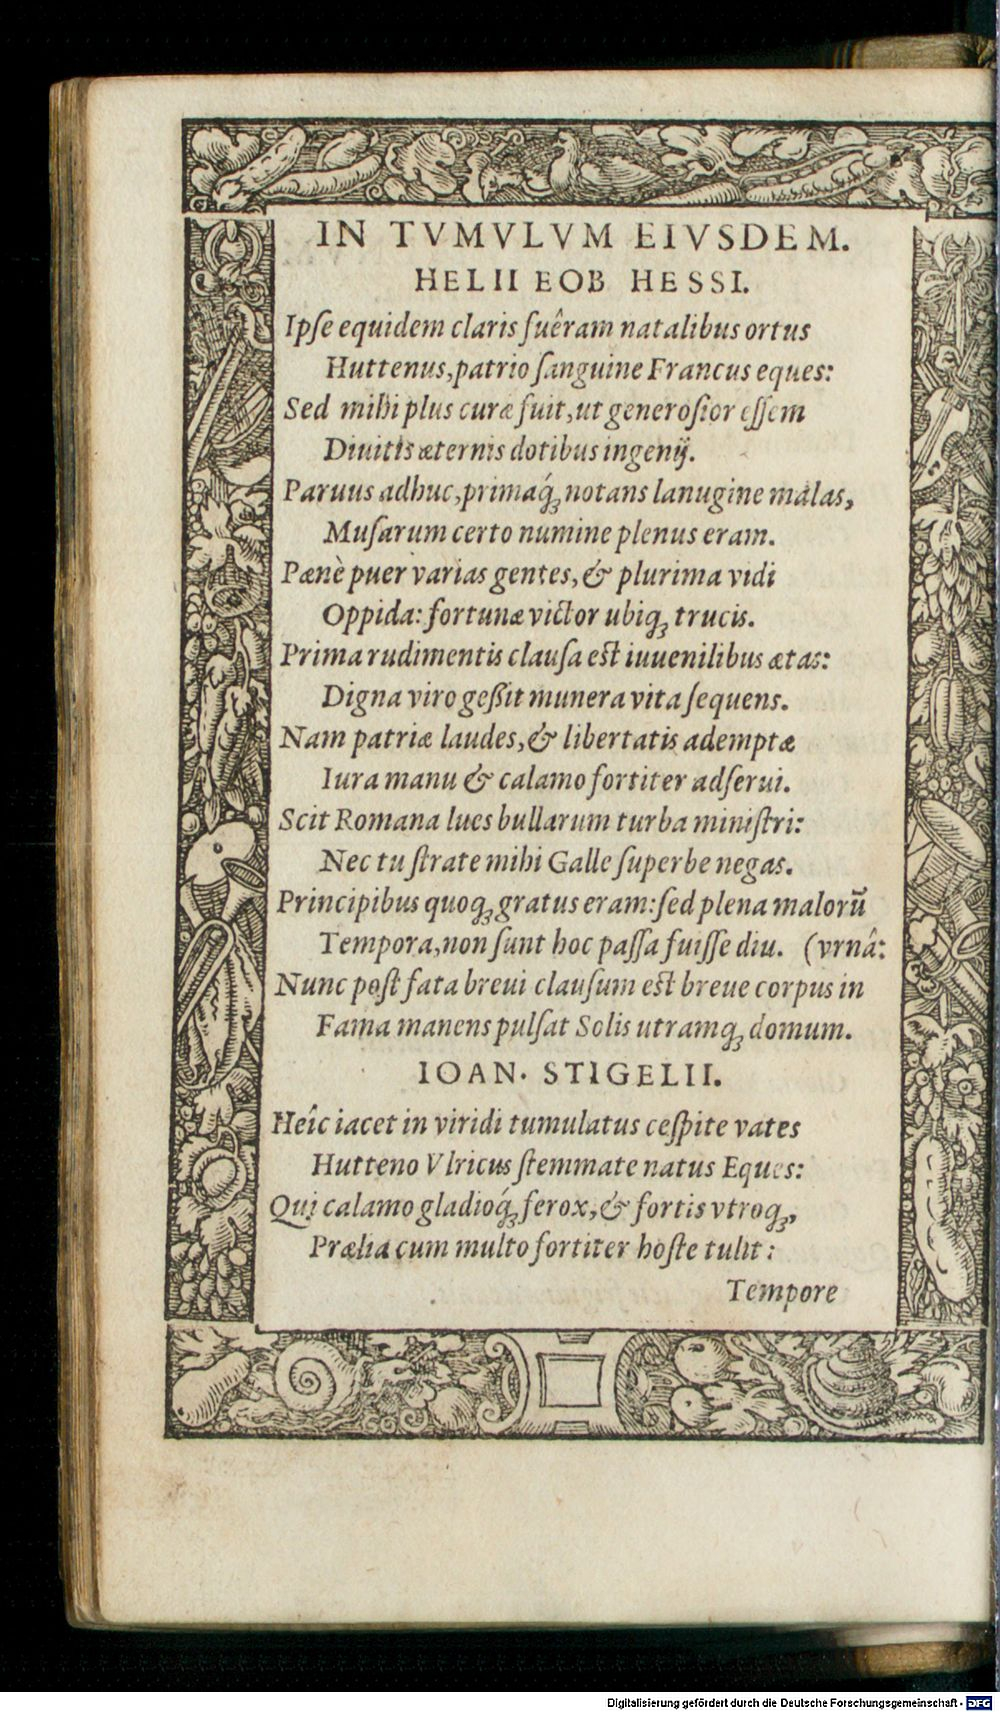 IN TVMVLVM EIVSDEM.
HELII EOB HESSI.
Ipſe equidem claris fuêram natalibus ortus
Huttenus, patrio ſanguine Francus eques:
Sed mihi plus curæ fuit, ut generoſior eſſem
Diuitis æternis dotibus ingenij.
Paruus adhuc, primaq́ꝫ notans lanugine malas,
Muſarum certo numine plenus eram.
Pænè puer varias gentes, & plurima vidi
Oppida: fortunæ victor ubiqꝫ trucis.
Prima rudimentis clauſa eſt iuuenilibus ætas:
Digna viro geſſit munera vita ſequens.
Nam patriæ laudes, & libertatis ademptæ
Iura manu & calamo fortiter adſerui.
Scit Romana lues bullarum turba miniſtri:
Nec tu ſtrate mihi Galle ſuperbe negas.
Principibus quoqꝫ gratus eram: ſed plena malorũ
Tempora, non ſunt hoc paſſa fuiſſe diu. (vrnâ:
Nunc poſt fata breui clauſum eſt breue corpus in
Fama manens pulſat Solis utramqꝫ domum.
IOAN. STIGELII.
Heîc iacet in viridi tumulatus ceſpite vates
Hutteno Vlricus ſtemmate natus Eques:
Qui calamo gladioq́ꝫ ferox, & fortis vtroqꝫ,
Prælia cum multo fortiter hoſte tulit:
Tempore
Digitalisierung gefördert durch die Deutsche Forschungsgemeinschaft - DFG